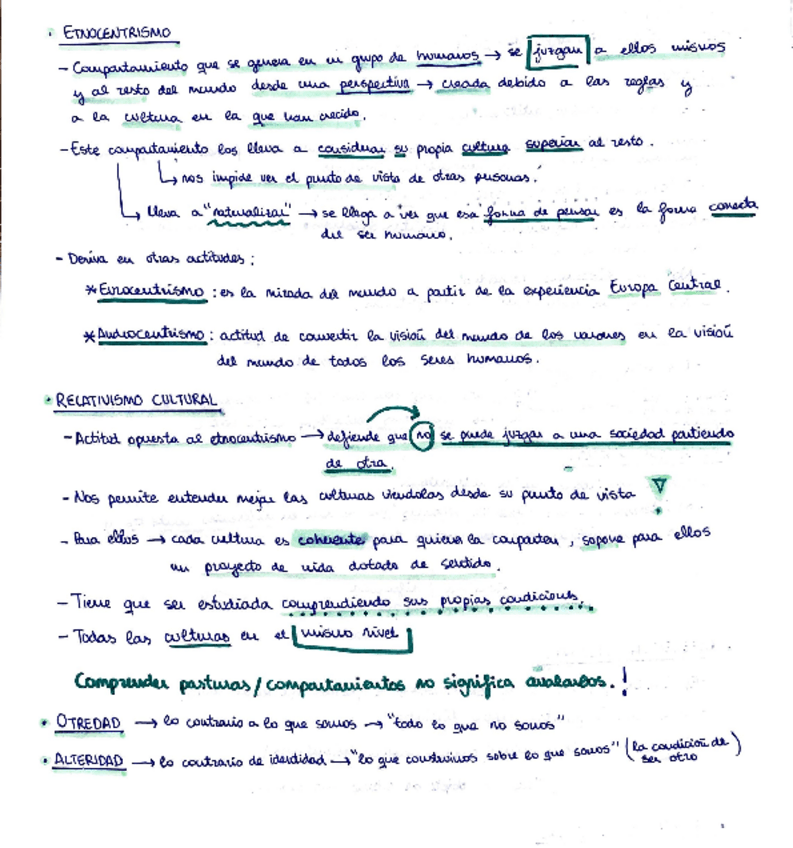 · ETNOCENTRISMO
- Comportamiento que se genera en un grupo de humanos → se juzgan a ellos mismos
y al resto del mundo desde una perspectiva → creada debido a las reglas y
a la cultura en la que han crecido.
- Este comportamiento los lleva a considerar su propia cultura superior al resto.
↳ nos impide ver el punto de vista de otras personas.
↳ lleva a "naturalizar" → se llega a ver que esa forma de pensar es la forma correcta
del ser humano.
- Deriva en otras actitudes:
* Eurocentrismo: es la mirada del mundo a partir de la experiencia Europa Central.
* Androcentrismo: actitud de convertir la visión del mundo de los varones en la visión
del mundo de todos los seres humanos.
· RELATIVISMO CULTURAL
- Actitud opuesta al etnocentrismo → defiende que no se puede juzgar a una sociedad partiendo
de otra.
- Nos permite entender mejor las culturas viendolas desde su punto de vista
- Para ellos → cada cultura es coherente para quienes la comparten, supone para ellos
un proyecto de vida dotado de sentido.
- Tiene que ser estudiada comprendiendo sus propias condiciones.
- Todas las culturas en el mismo nivel
Comprender posturas/comportamientos no significa avalarlos.!
· OTREDAD → lo contrario a lo que somos → "todo lo que no somos"
· ALTERIDAD → lo contrario de identidad → "lo que construimos sobre lo que somos" (la condición de
ser otro)